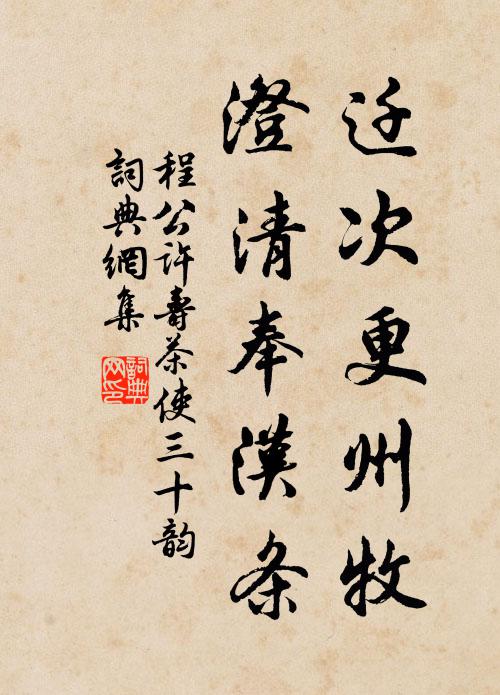 迁次更州牧
澄清奉漢条
程公许壽茶使三十韵
詞典網集
詞典网印